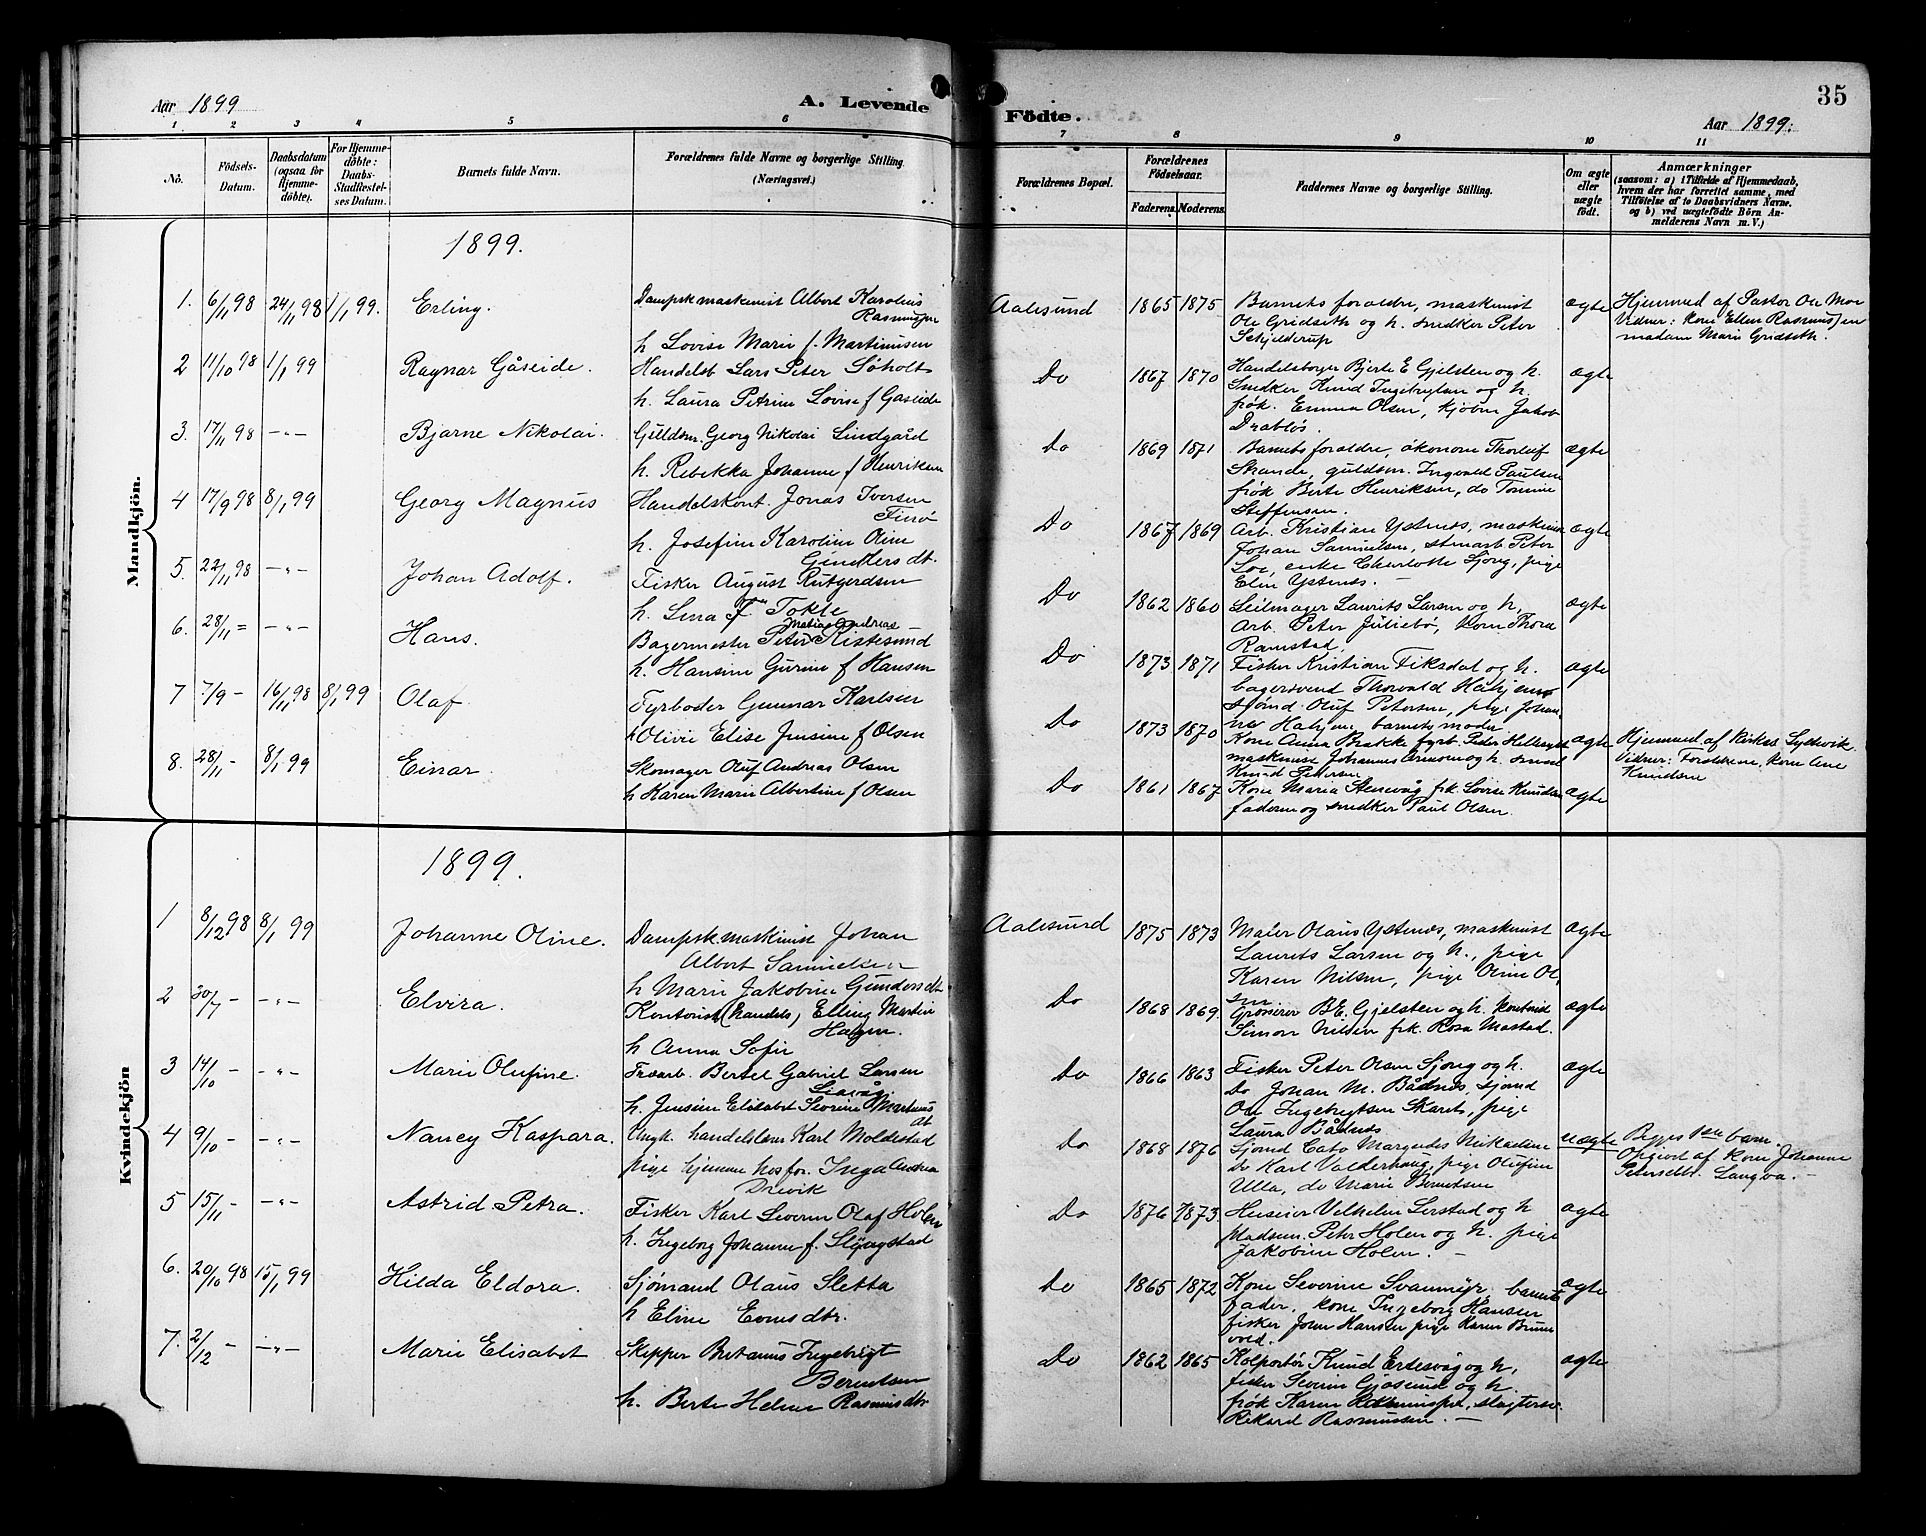 Aar 1899
A. Levende
1 2 3 4 5 6
No.
Födsels-
Datum.
Daabsdatum
(ogsaa for
Hjemme-
döbte).
For Hjemme-
döbte:
Daabs-
Stadfæstel-
ses Datum.
Barnets fulde Navn.
Forældrenes fulde Navne og borgerlige Stilling.
(Næringsvei.)
Mandkjön.
1899.
1. 6/11 98 24/11 98 1/1 99. Erling. Dampskmaskinist Albert Karolius
Rasmussen
h Lovise Marie f. Martinusen
2 11/10 98 1/1 99 Ragnar Gåseide. Handelsb Lars Peter Søholt
h. Laura Petrine Lovise f Gaseide
3. 17/11 98 -"- Bjarne Nikolai. Gulldsm. Georg Nikolai Lindgård
h. Rebekka Johanne f Henriksen
4 17/9 98 8/1 99 Georg Magnus Handelskont. Jonas Iversen
Finø
h. Josefine Karoline Oline
Gunders dt.
5. 22/11 98 -"- Johan Adolf. Fisker August Rutgerdsen
h. Lina f. Tokle
6. 28/11 = -"- Hans. Bagermester Peter Matias Andreas Ristesund
h. Hansine Gurine f Hansen
7 7/9 - 16/11 98 8/1 99 Olaf Fyrbøder Gunnar Karlsen
h Olivie Elise Jensine f Olsen
8. 28/11 - 8/1 99 Einar. Skomager Oluf Andreas Olsen
h Karen Marie Albertine f Olsen
Kvindekjön
1899.
1 8/12 98 8/1 99 Johanne Oline. Dampskmaskinist Johan
Albert Samuelsen
h Marie Jakobine Gundersdt
2 30/7 - -"- Elvira. Kontorist (handels) Elling Martin
Hagen.
h Anna Sofie
3 14/10 - -"- Marie Olufine. Træarb. Bertel Gabriel Larsen
Liavåg
h. Jensine Elisabet Severine Martinus
dt
4 9/10 - -"- Nancy Kaspara. Ungk. handelslærer Karl Moldestad
pige hjemme hos for. Inga Andrea
Drevik
5 15/11 - -"- Astrid Petra. Fisker Karl Severin Olaf Holen
h. Ingeborg Johanne f. Slyngstad
6. 20/10 98 15/1 99 Hilda Eldora. Sjømand Olaus Sletta
h Eline Evensdtr.
7. 2/12 - -"- Marie Elisabet Skipper Bertanus Ingebrigt
Berentsen
h. Berte Helene Rasmusdtr
35
Födte.
Aar 1899.
7 8 9 10 11
Forældrenes Bopæl.
Forældrenes
Födselsaar.
Faderens. Moderens.
Faddernes Navne og borgerlige Stilling.
Om ægte
eller
uægte
födt.
Anmærkninger
(saasom: a) i Tilfælde af Hjemmedaab,
hvem der har forrettet samme, med
Tilföielse af to Daabsvidners Navne.
og b) ved uægtefödte Börn An-
melderens Navn m.V.)
Aalesund 1865 1875 Barnets forældre, maskinist ægte Hjemmed af Pastor Ole Moe
Ole Gridseth og h. snedker Peter Vidner: kone Ellen Rasmussen
Schjelderup madam Marie Gridseth.
Do 1867 1870 Handelsborger Bjerte E Gjelsten og h. ægte
Snedker Knud Ingebrigtsen og h.
frøk. Emma Olsen, kjøbm Jakob
Drabløs.
Do 1869 1871 Barnets forældre, økonom Thorleif ægte
Strande, guldsm. Ingvald Paulsen
frøk Berte Henriksen, do Tomine
Steffensen.
Do 1867 1869 Arb. Kristian Ystenes, maskinist ægte
Johan Samuelsen, stenarb Peter
Loe, enke Charlotte Sjong, pige
Elen Ystenes. -
Do 1862 1860 Seilmager Laurits Larsen og h, ægte
Arb. Peter Juliebø, kone Thora
Ramstad,
Do 1873 1871 Fisker Kristian Fiksdal og h. ægte
bagersvend Thorvald Hahjem
sjømd. Oluf Petersen, pige Johan-
ne Hahjem, barnets moder
Do 1873 1870 Kone Anna Brakke fyrb. Peder Hellesylt ægte Hjemmed af kirkes. Syltevik
maskinist Johannes Arneson og h. Vidner: Forældrene, kone Ane
Knud Petersen Knudsen
Do 1861 1867 Kone Maria Stensvåg frk. Lovise Knudsen ægte
faderen og snedker Paul Olsen.
Aalesund 1875 1873 Maler Olaus Ystenes, maskinist ægte
Laurits Larsen og h., pige
Karen Nilsen, pige Oline Ol,
sen.
Do 1868 1869. Grosserer B.E. Gjelsten og h. kontorist ægte
Simon Nilsen frk. Rosa Mastad.
Do 1866 1863 Fisker Peter Olsen Sjong og h. ægte
Do Johan M. Bådsnes, sjømd
Ole Ingebrigtsen Skarets, pige
Laura Bådsnes
Do 1868 1876 Sjømd Cato Margido Mikkelsen uægte Begges 1ste barn.
do Karl Valderhaug, pige Olufine Opgivet af kone Johanne
Ulla, do Marie Berentsen Petersdt. Langva. -
Do 1876 1873. Huseier Vilhelm Lerstad og h ægte
Madsm. Peter Holen og h. pige
Jakobine Holen. -
Do 1865 1872 Kone Severine Svanmyr, barnets ægte
fader, kone Ingeborg Hansen
fisker John Hansen pige Karen Brune
vold.
Do 1862 1865 Kolportør Knud Ertesvåg og h, ægte
fisker Severin Gjøsund og h.
frøk Karen Rasmussen, slagtersv.
Rikard Rasmussen. -